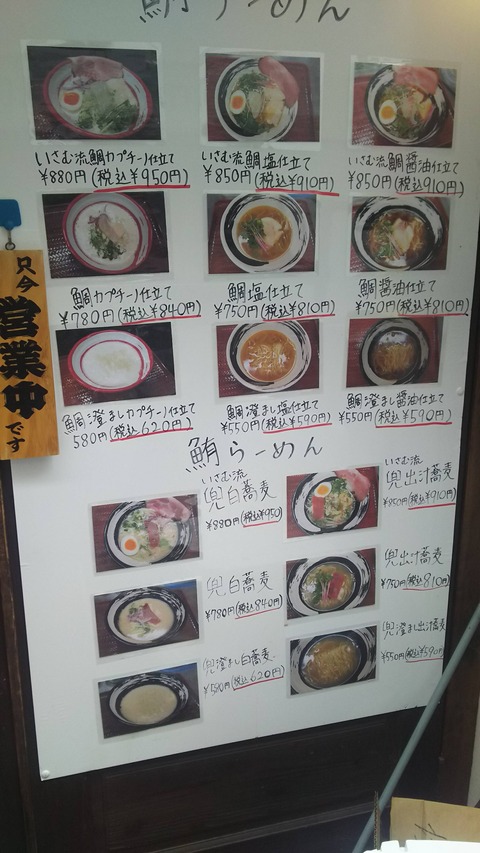 鯛らーめん
いさむ流鯛カプチーノ仕立て
¥880円(税込¥950円)
いさむ流鯛塩仕立て
¥850円(税込¥910円)
いさむ流鯛醤油仕立て
¥850円(税込910円)
鯛カプチーノ仕立て
¥780円(税込¥840円)
鯛塩仕立て
¥750円(税込¥810円)
鯛醤油仕立て
¥750円(税込¥810円)
鯛澄ましカプチーノ仕立て
580円(税込620円)
鯛澄まし塩仕立て
¥550円(税込¥590円)
鯛澄まし醤油仕立て
¥550円(税込¥590円)
只今
営業中
です
鮪らーめん
いさむ流
兜白蕎麦
¥880円(税込¥950)
いさむ流
兜出汁蕎麦
¥850円(税込¥910円)
兜白蕎麦
¥780円(税込840円)
兜出汁蕎麦
¥750円(税込810円)
兜澄まし白蕎麦
¥580円(税込620円)
兜澄まし出汁蕎麦
¥550円(税込590円)